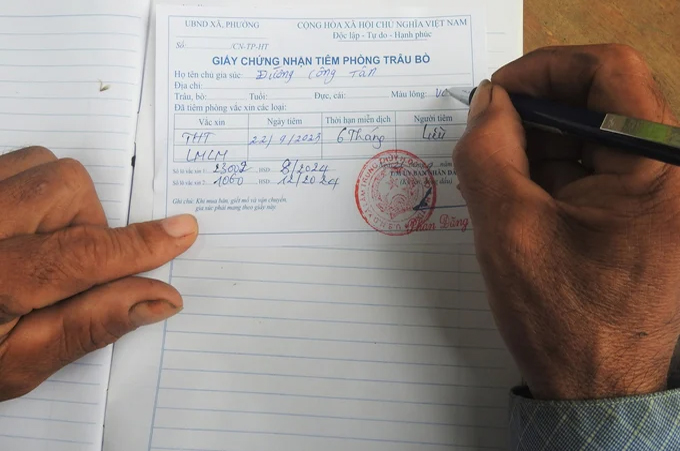 UBND XÃ, PHƯỜNG
CỘNG HÒA XÃ HỘI CHỦ NGHĨA VIỆT NAM
Độc lập - Tự do - Hạnh phúc
Số /CN-TP-HT
GIẤY CHỨNG NHẬN TIÊM PHÒNG TRÂU BÒ
Họ tên chủ gia súc: Đường Công Tấn
Địa chỉ:
Trâu, bò: Tuổi: Đực, cái: Màu lông:
Đã tiêm phòng vắc xin các loại:
Vắc xin Ngày tiêm Thời hạn miễn dịch Người tiêm
THT 22/9/2023 6 Tháng Liễu
LMLM
Số lô vắc xin 1: 23002 HSD 8/2024
Số lô vắc xin 2: 1060 HSD 12/2024
năm
T.M ỦY BAN NHÂN DÂ
(Ký tên, đóng dấu)
Ghi chú: Khi mua bán, giết mổ và vận chuyển,
gia súc phải mang theo giấy này.
Phan Đăng